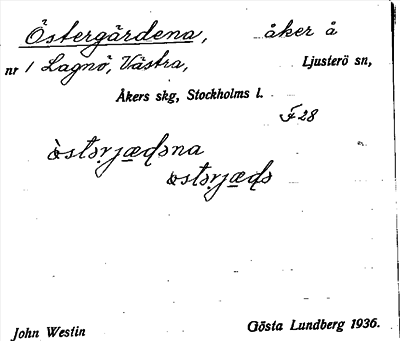 Östergärdena, åker å
nr 1 Lagnö, Västra, Ljusterö sn,
Åkers skg, Stockholms l.
F 28
östərjæḍəna
østərjæḍs
John Westin Gösta Lundberg 1936.